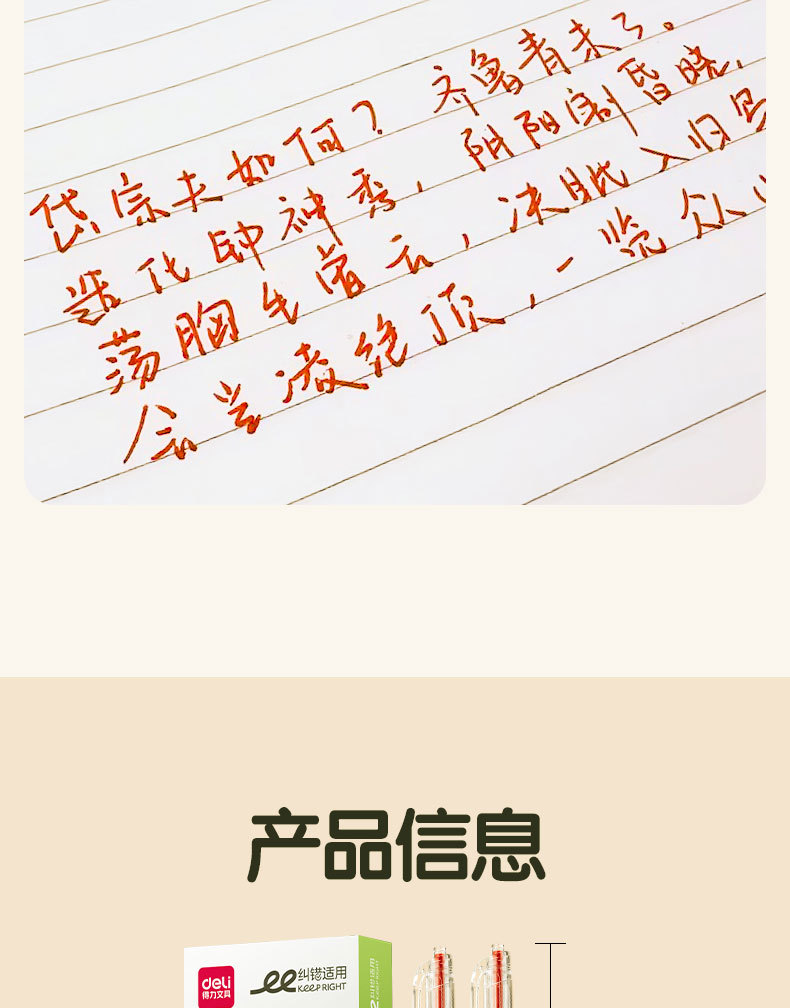 岱宗夫如何？齐鲁青未了。
造化钟神秀，阴阳割昏晓，
荡胸生曾云，决眦入归鸟
会当凌绝顶，一览众山
产品信息
deli
得力文具
纠错适用
KeepRIGHT
纠错适用
KeepRIGHT